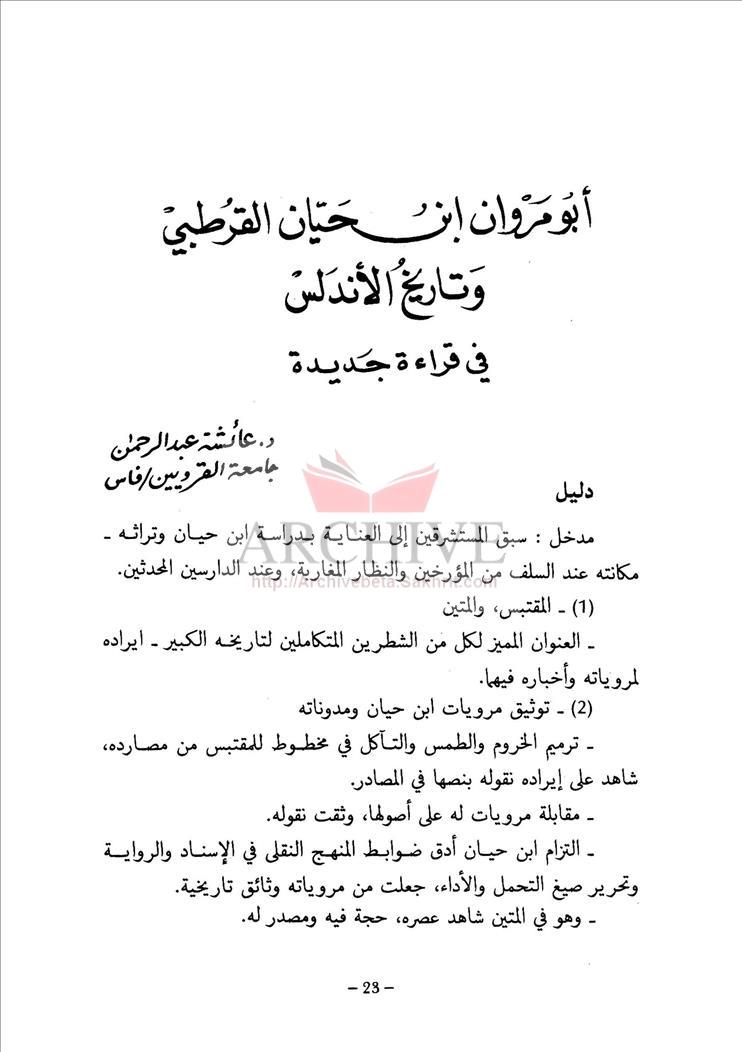 أبو مَرْوان ابن حَيّان القرُطبيْ
وَتاريخُ الأندلسْ
في قراءة جَديدة
د. عائشة عبد الرحمٰن
جامعة القرويين/فاس
دليل
مدخل : سبق المستشرقين إلى العناية بدراسة ابن حيان وتراثه ـ
مكانته عند السلف من المؤرخين والنظار المغاربة، وعند الدارسين المحدثين.
(1) ـ المقتبس، والمتين
ـ العنوان المميز لكل من الشطرين المتكاملين لتاريخه الكبير ـ ايراده
لمروياته وأخباره فيهما.
(2) ـ توثيق مرويات ابن حيان ومدوناته
ـ ترميم الخروم والطمس والتآكل في مخطوط للمقتبس من مصارده،
شاهد على إيراده نقوله بنصها في المصادر.
ـ مقابلة مرويات له على أصولها، وثقت نقوله.
ـ التزام ابن حيان أدق ضوابط المنهج النقلى في الإسناد والرواية
وتحرير صيغ التحمل والأداء، جعلت من مروياته وثائق تاريخية.
ـ وهو في المتين شاهد عصره، حجة فيه ومصدر له.
– 23 –
ARCHIVE
http://Archivebeta.Sakhrit.com